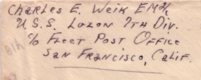 Charles E. Weik EM3/c
U.S.S. Luzon 7th Div.
c/o Fleet Post Office
San Francisco, Calif.